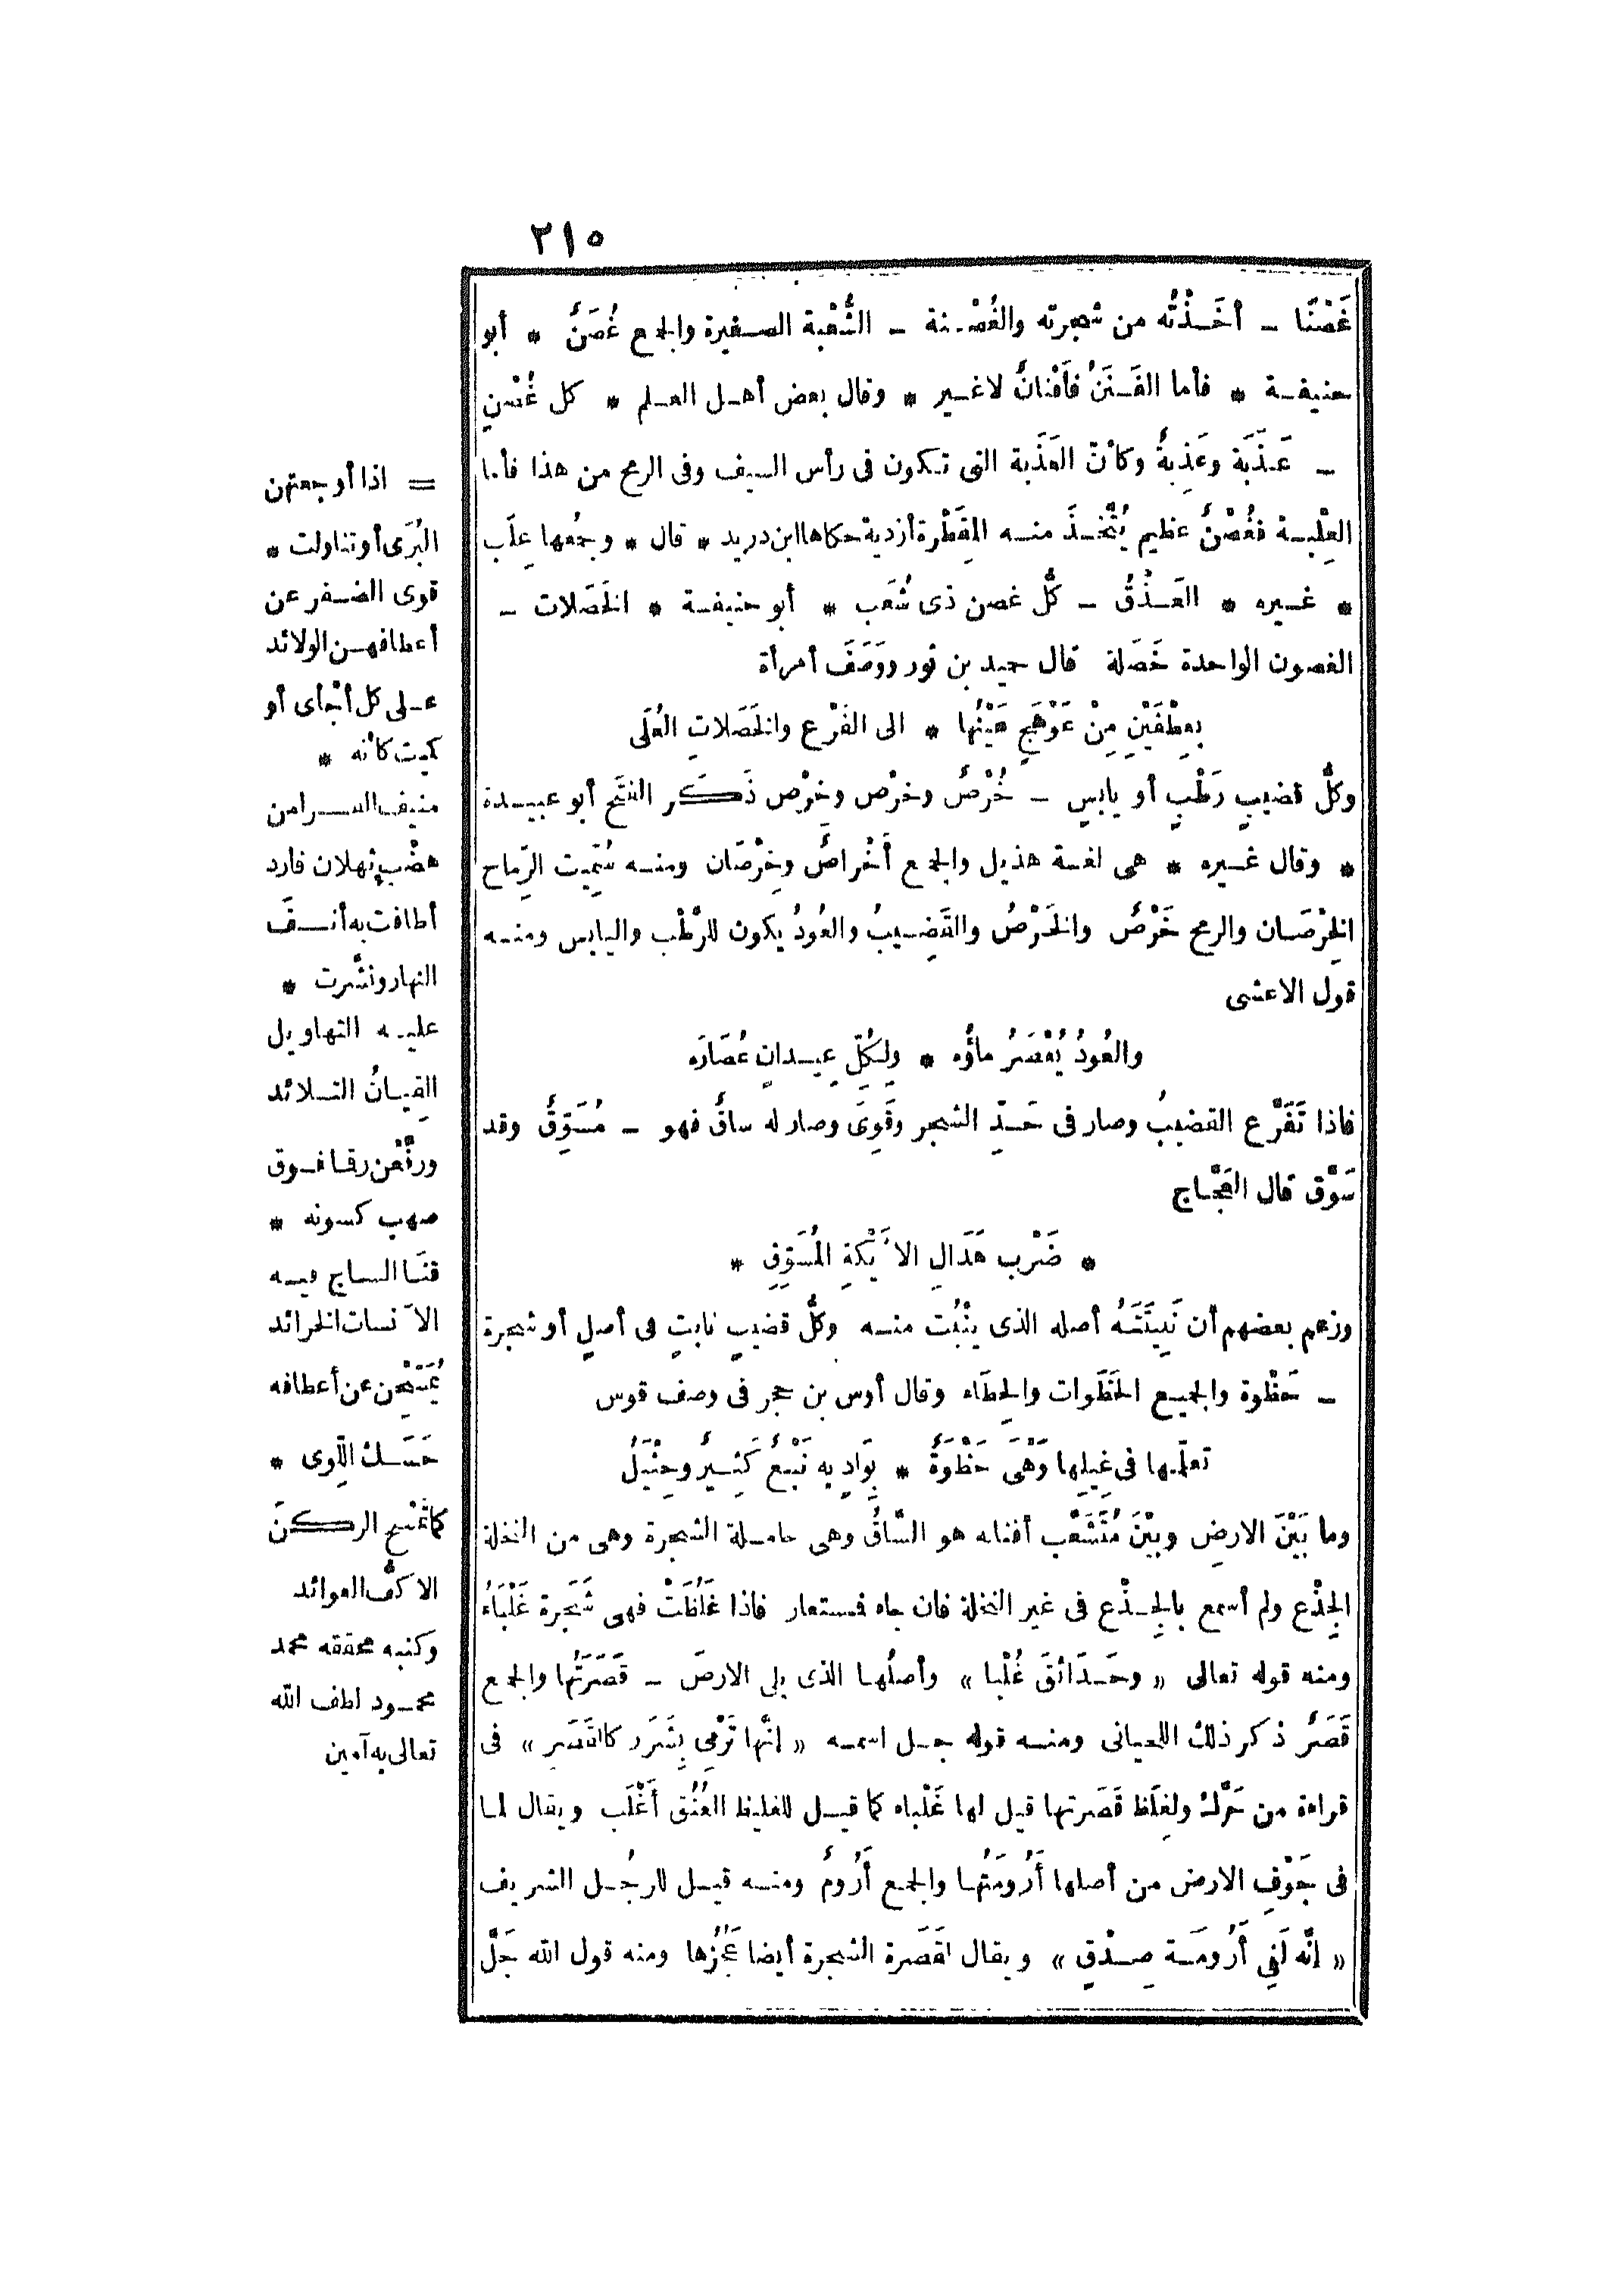 ٢١٥
غَصْنًا ــ أخَــذْتُه من شجرته والغُصْنة ــ الشُّعْبة الصغيرة والجمع غُصَنٌ * أبو
حنيفة * فأما الفَنَنُ فأَفْنانٌ لاغير * وقال بعض أهل العلم * كل غُصْنٍ
ــ عَذَبَة وعَذِبةٌ وكأنّ العَذَبة التى تكون فى رأس السيف وفى الرمح من هذا فأما
العِلْبة فغُصْنٌ عظيم يُتَّخذَ منه المِقَطْرة أزدية حكاها ابن دريد * قال * وجمعها عِلَب
* غيره * العَذْقُ ــ كُلُّ غصن ذى شُعَب * أبو حنيفة * الخَصَلات ــ
الغصون الواحدة خَصَلة قال حميد بن ثور ووَصَفَ أمرأة
بِعِطْفَيْنِ مِنْ عَوْهَجٍ هَيْنُها * الى الفَرْع والخَصَلاتِ العُلَى
وكلُّ قضيبٍ رَطْبٍ أو يابسٍ ــ خُرْصٌ وخرْص وخِرْص ذَكَر الفتح أبو عبيدة
* وقال غيره * هى لغة هذيل والجمع أَخْراصٌ وخِرْصَان ومنه سُمِّيت الرِّماح
الخِرْصَان والرمح خَرْصٌ والخَرْصُ والقَضِيبُ والعُودُ يكون للرَّطْب واليابس ومنه
قول الاعشى
والعُودُ يُعْصَرُ ماؤُه * ولِكُلِّ عِيدانٍ عُصَارَه
فاذا تَفَرَّع القضيبُ وصار فى حَدّ الشجر وقَوِىَ وصار له ساقٌ فهو ــ مُسَوِّقٌ وقد
سَوَّق قال العَجَّاج
* ضَرْب هَدَالِ الأَيْكةِ المُسَوِّقِ *
وزعم بعضهم أن نَبِيتَتَهُ أصله الذى ينْبُت منه وكلُّ قضيبٍ نابتٍ فى أصلِ أو شجرة
ــ حَظْوة والجميع الحَظَوات والحِظَاء وقال أوس بن حجر فى وصف قوس
تعلَّمها فى غِيلِها وَهْىَ حَظْوَةٌ * بِوَادٍ به نَبْعٌ كَثِيرٌ وحِثْيَلُ
وما بَيْنَ الارضِ وبيْنَ مُتَشَعَّب أفنانه هو السَّاقُ وهى حاملة الشجرة وهى من النخلة
الجِذْع ولم أسمع بالجِذْع فى غير النخلة فان جاء فمستعار فاذا غَلُظَتْ فهى شَجَرة غَلْبَاءُ
ومنه قوله تعالى « وحَدَائقَ غُلْبا » وأصلُها الذى يلى الارضَ ــ قَصَرَتُها والجمع
قَصَرٌ ذكر ذلك اللحيانى ومنه قوله جل اسمه « انَّها تَرْمِى بِشَرَر كالقَصَر » فى
قراءة من حَرَّك ولِغِلَظ قَصَرتها قيل لها غَلْباء كما قيل للغليظ العُنُق أَغْلَب ويقال لما
فى جَوْفِ الارض من أصلها أَرُومَتُها والجمع أَرُومٌ ومنه قيل للرجُل الشريف
« انَّه لَفِى أَرُومَة صِدْقٍ » ويقال لقَصَرة الشجرة أيضا عَجُزُها ومنه قول الله جَلَّ
= اذا أوجعتهن
البُرَى أو تناولت *
قوى الضفر عن
أعطافهن الولائد
على كل أجأى أو
كميت كأنه *
منيف الذرا من
هضْب ثهلان فارد
أطافت به أنف
النهار ونشَّرت *
عليه التهاويل
القِيانُ التلائد
ورفَّعْن رقما فوق
صهب كسونه *
قنَا الساج فيه
الآنسات الخرائد
يُمَسِّحْن عن أعطافه
حَسَك اللِّوى *
كما تَمْسح الركنَ
الاكفُّ العوائد
وكتبه محققه محمد
محمود لطف الله
تعالى به آمين